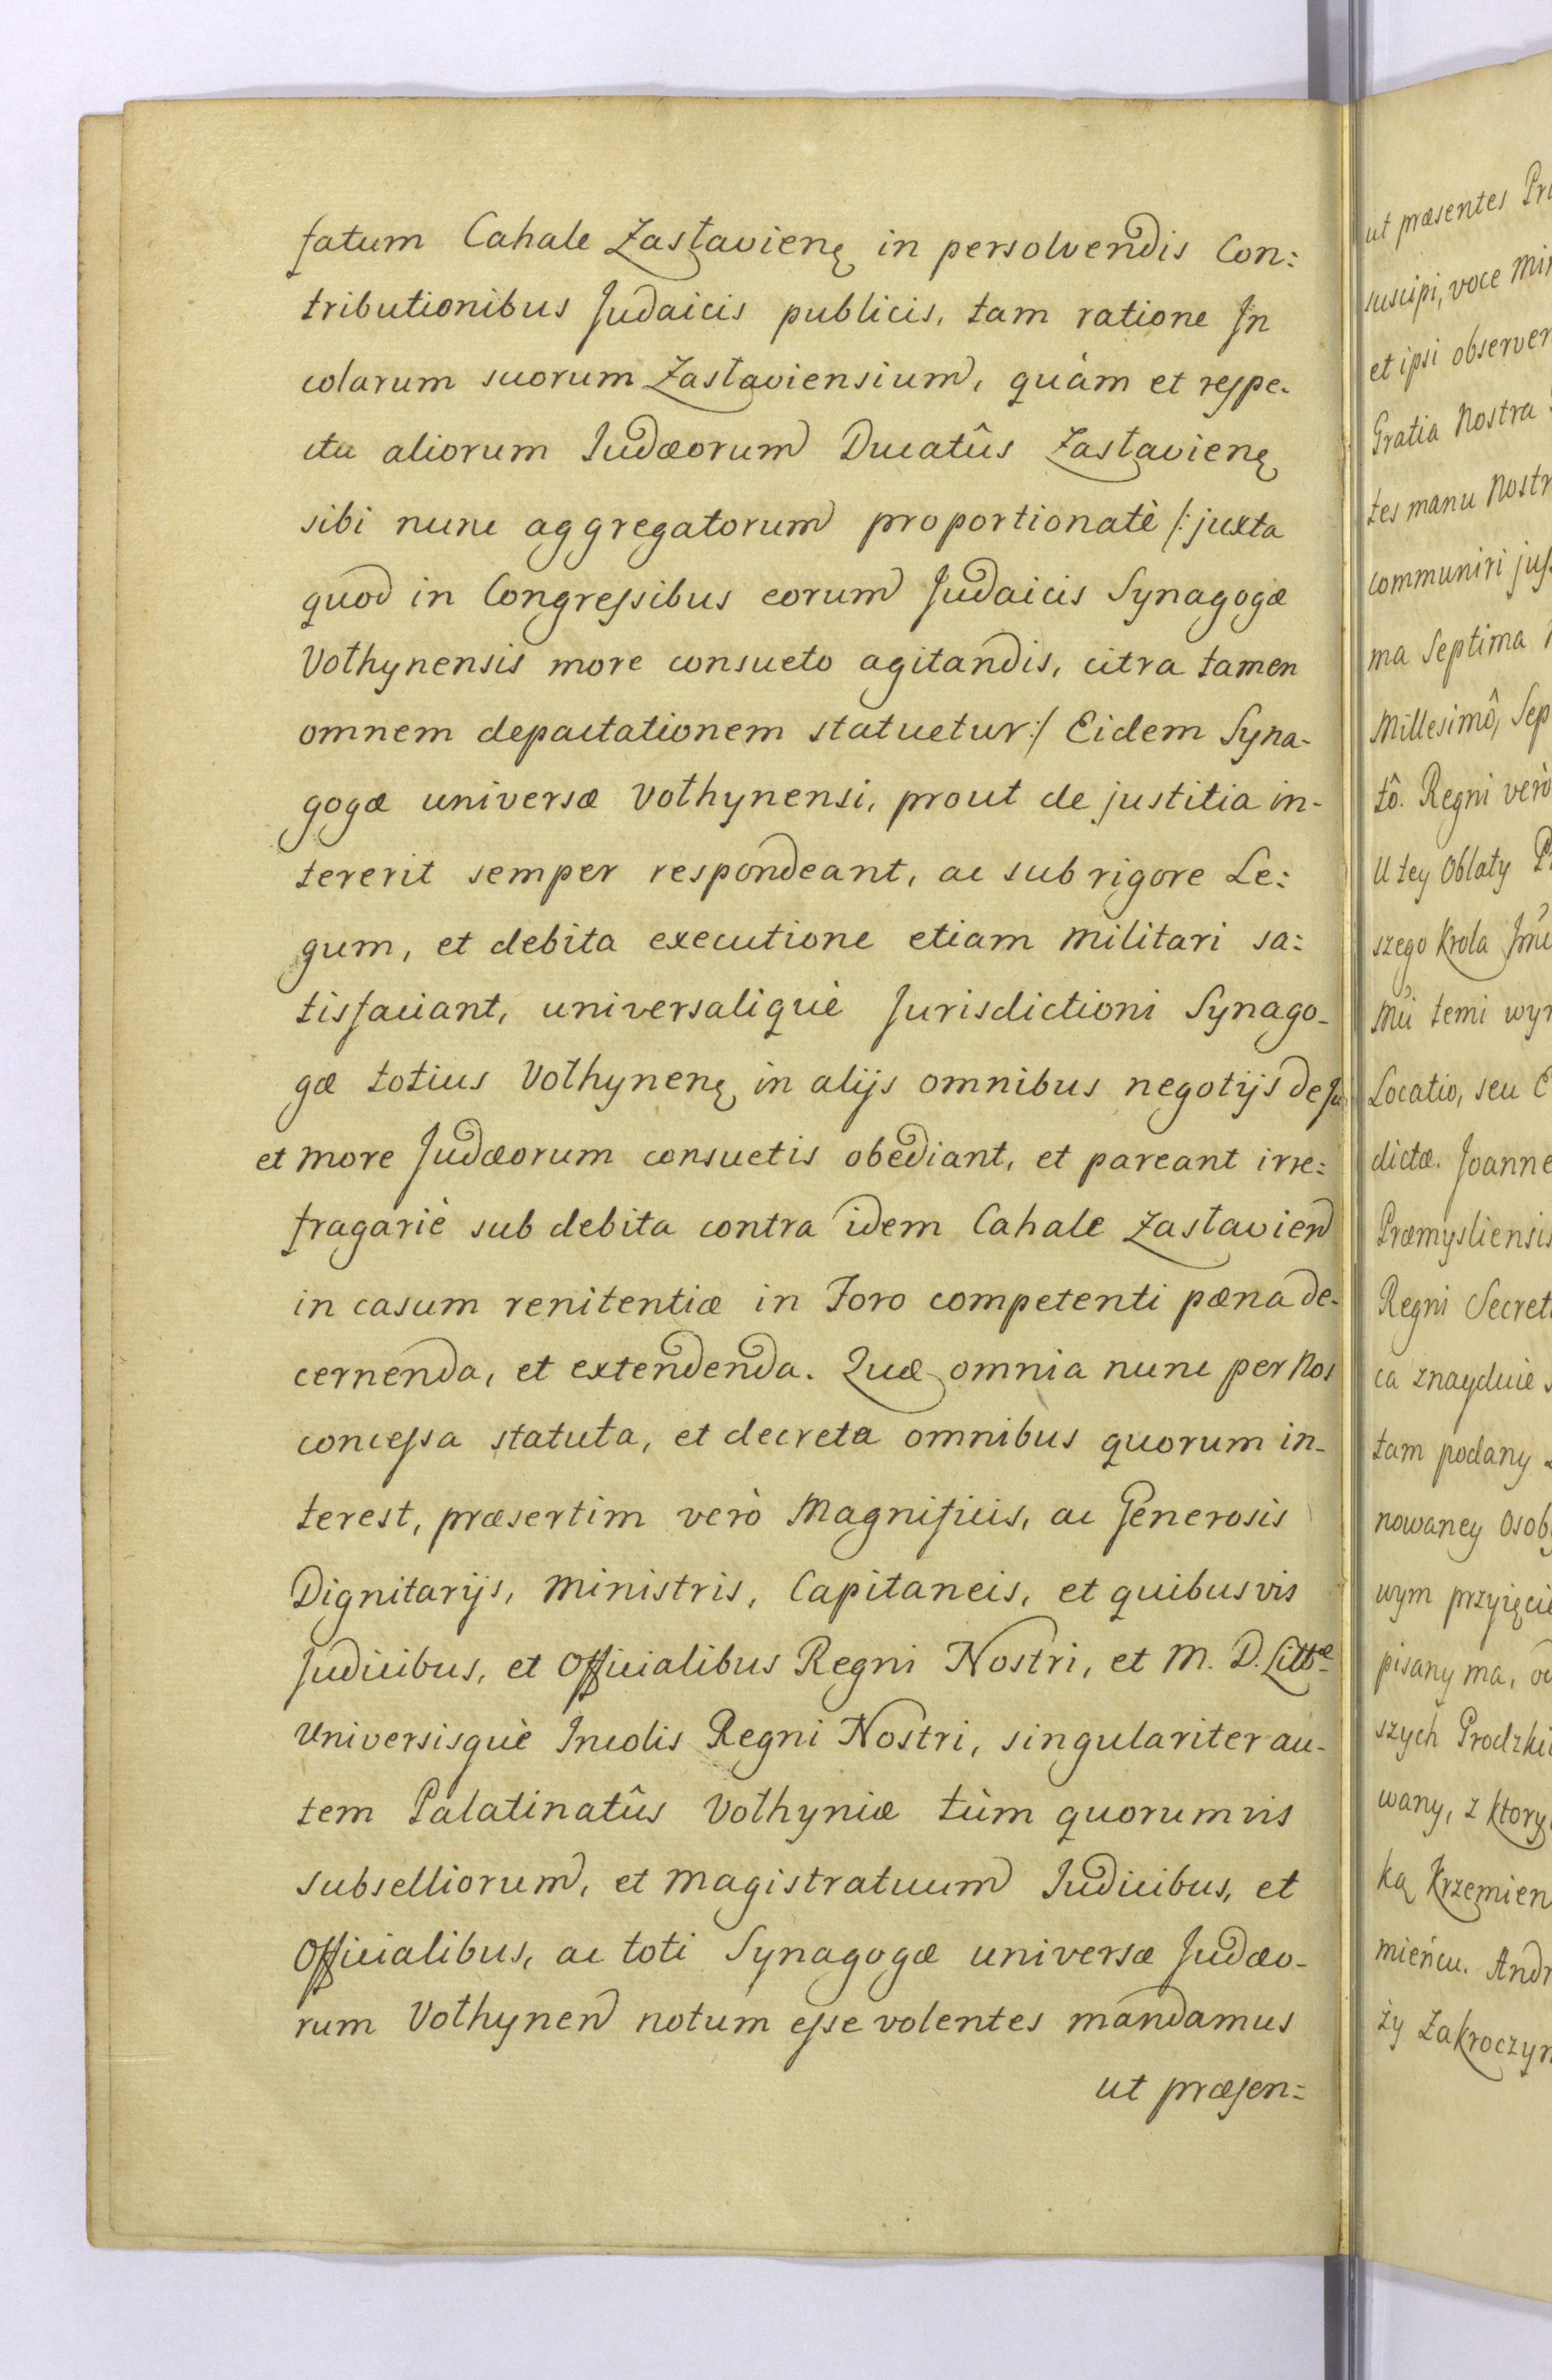 fatum Cahale Zasłavienę in persolvendis Con:
tributionibus Judaicis publicis, tam ratione In
colarum suorum Zasłaviensium, quàm et respe-
ctu aliorum Judæorum Ducatûs Zasłavienę
sibi nunc aggregatorum proportionatè /: juxta
quod in Congressibus eorum Judaicis Synagogæ
Vołhynensis more consueto agitandis, citra tamen
omnem depactationem statuetur :/ Eidem Syna-
gogæ universæ Vołhynensi, prout de justitia in-
tererit semper respondeant, ac sub rigore Le:
gum, et debita executione etiam Militari sa:
tisfaciant, universaliquè Jurisdictioni Synago-
gæ totius Vołhynenę in alijs omnibus negotijs de Ju
et More Judæorum consuetis obediant, et pareant irre:
fragariè sub debita contra idem Cahale Zasłavien
in casum renitentiæ in Foro competenti pæna de-
cernenda, et extendenda. Quæ omnia nunc per Nos
concessa statuta, et decreta omnibus quorum in-
terest, præsertim verò Magnificis, ac Generosis
Dignitarijs, Ministris, Capitaneis, et quibusvis
Judicibus, et Officialibus Regni Nostri, et M. D. Littæ
Universisquè Incolis Regni Nostri, singulariter au-
tem Palatinatûs Vołhyniæ tùm quorumvis
subselliorum, et Magistratuum Judicibus, et
Officialibus, ac toti Synagogæ universæ Judæo-
rum Vołhynen notum esse volentes mandamus
ut præsen:
ut præsentes
suscipi, voce
et ipsi
Gratia Nostra
tes manu
communiri
ma Septima
Millesimô,
tô. Regni verò
U tey Oblaty
szego Krola
temi
Locatio, seu
dictæ.
Præmysliensis
Regni
ca znayduie
tam podany
nowaney
wym
pisany ma,
szych
wany, z
ką
mieńcu.
ży